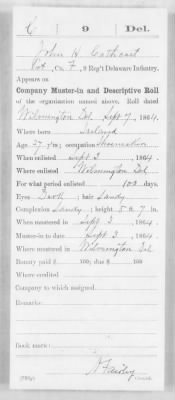 C | 9 | Del.
John H Cathcart
Pvt, Co. F, 9 Reg't Delaware Infantry.
Appears on
Company Muster-in and Descriptive Roll
of the organization named above. Roll dated
Wilmington Del Sept 7, 1864.
Where born Ireland
Age 27 y'rs; occupation Shoemaker
When enlisted Sept 2, 1864.
Where enlisted Wilmington Del
For what period enlisted 100 days.
Eyes Dark; hair Sandy
Complexion Sandy; height 5 ft. 7 in.
When mustered in Sept 3, 1864.
Muster-in to date Sept 3, 1864.
Where mustered in Wilmington Del
Bounty paid $ 100; due $ 100
Where credited
Company to which assigned
Remarks:
Book mark:
Copyist.